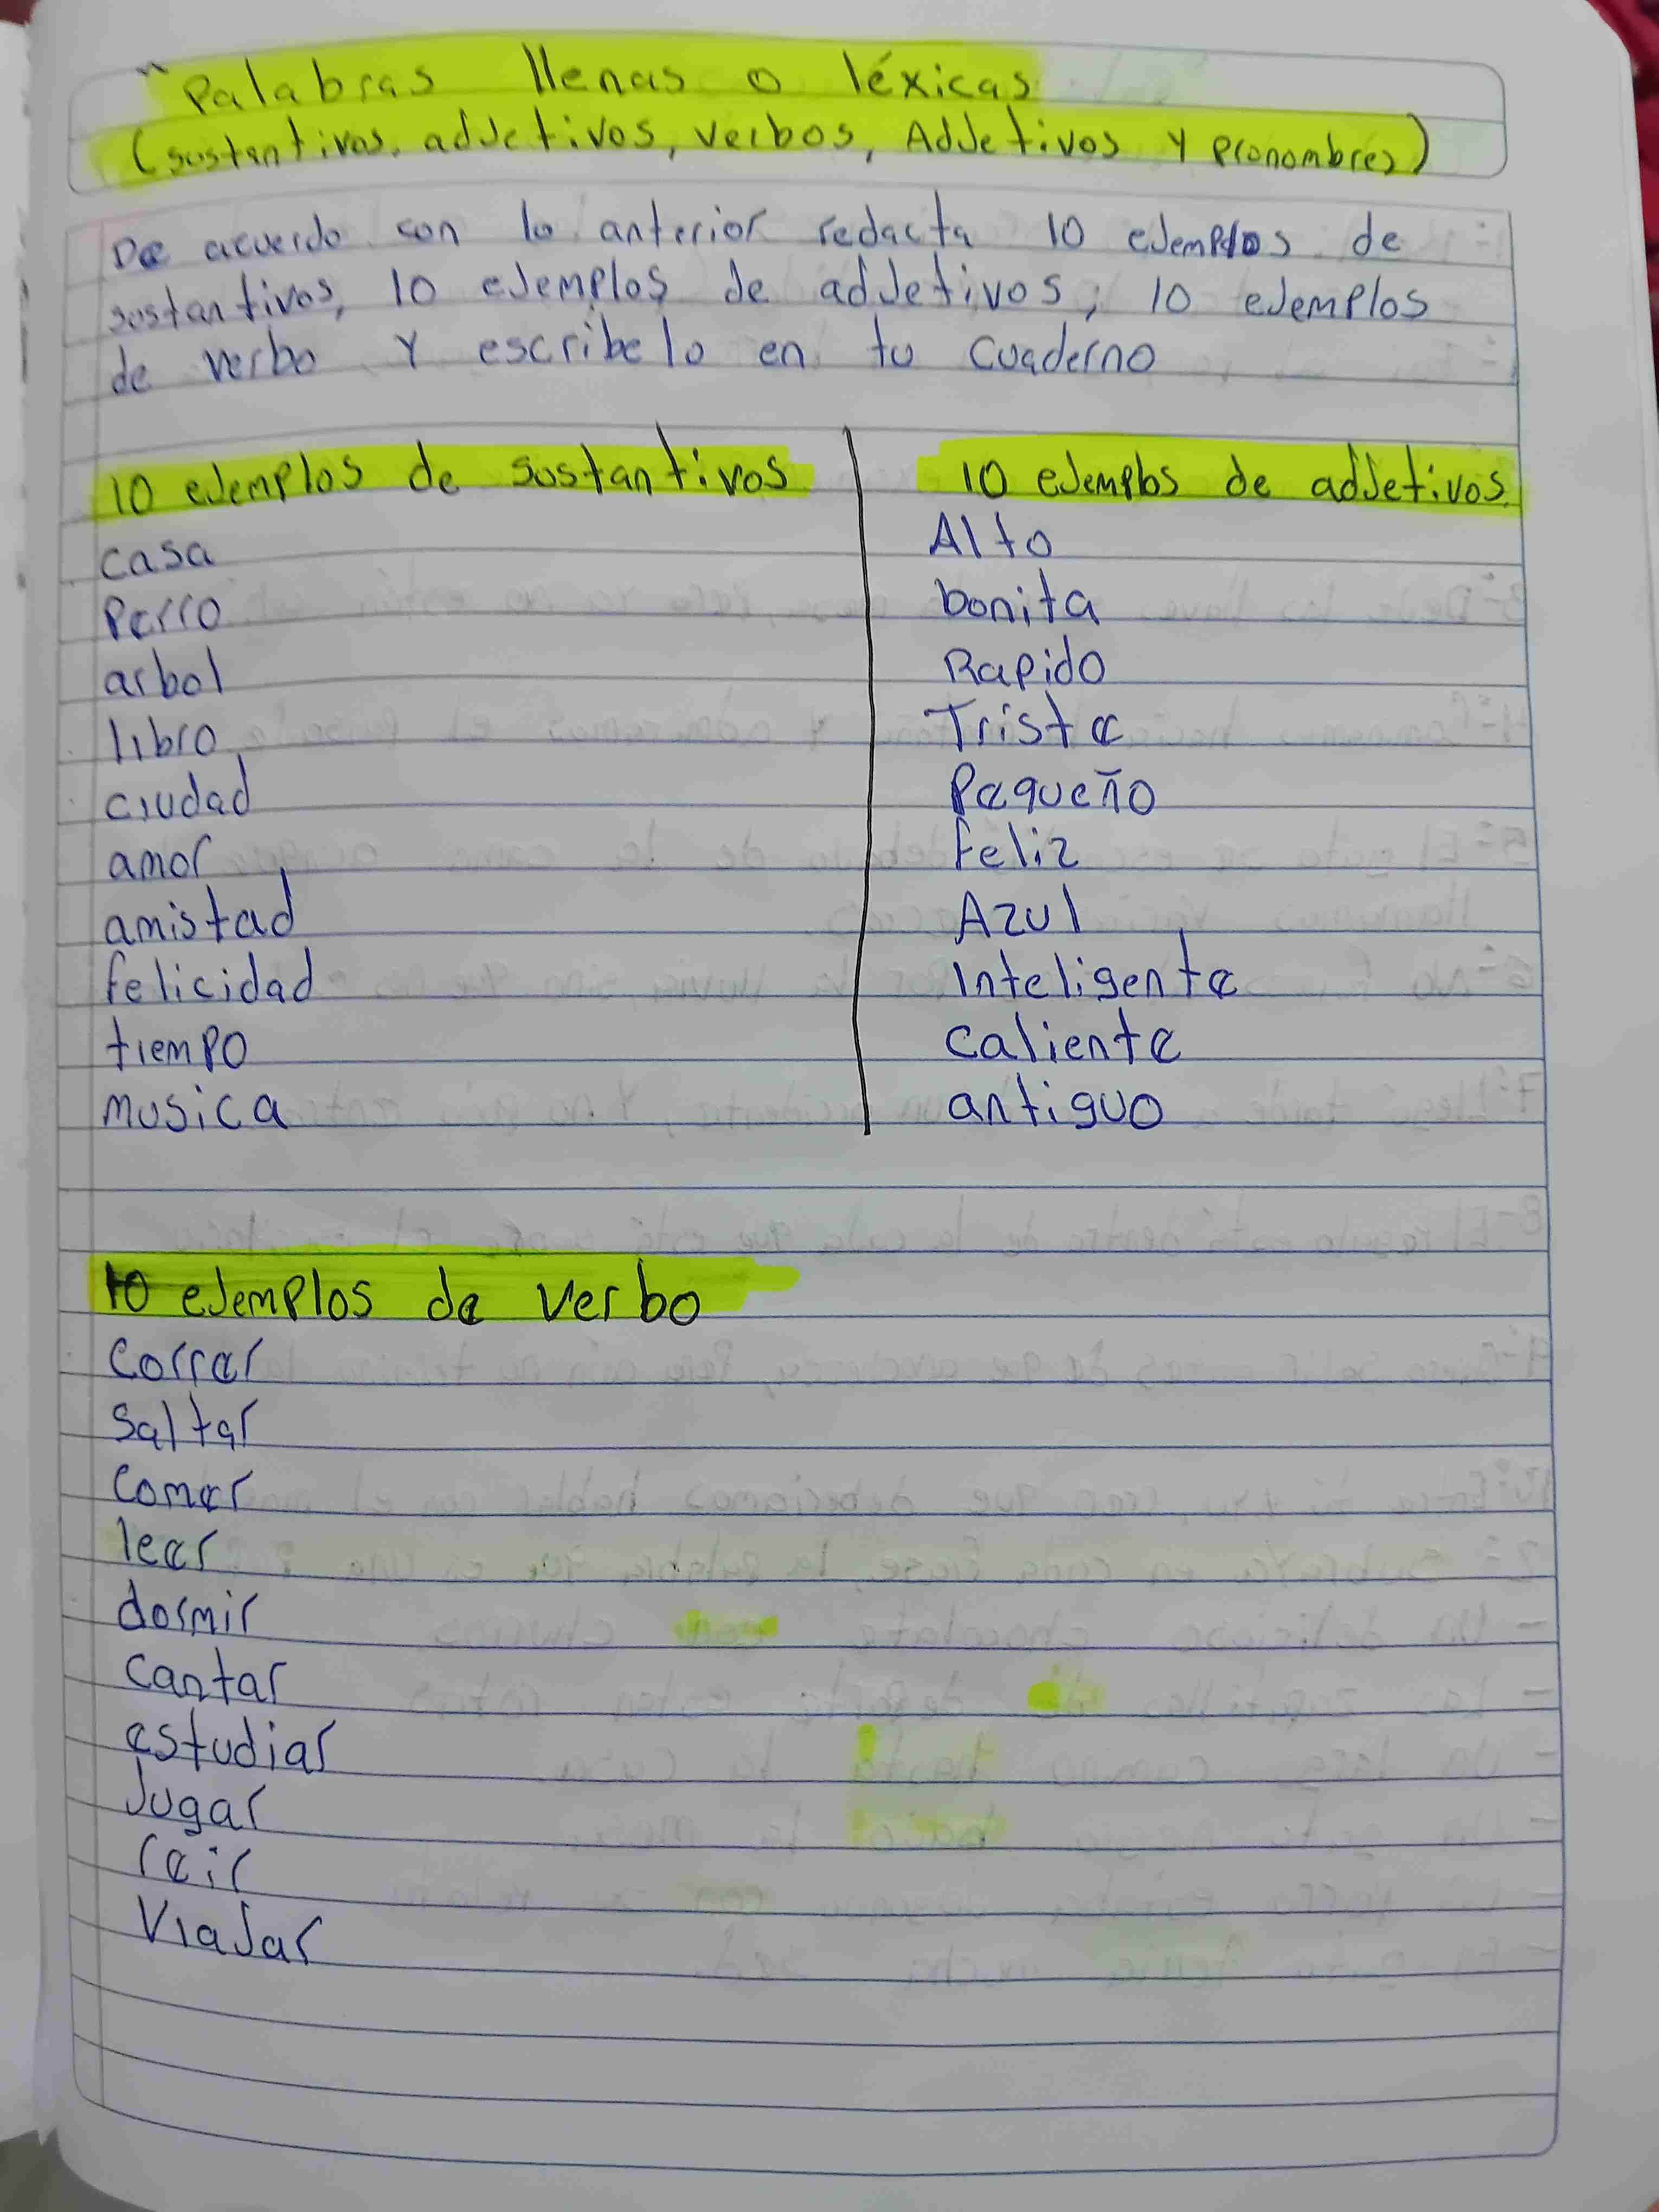 " Palabras llenas o léxicas
(sustantivos, adjetivos, verbos, Adjetivos y pronombres)
De acuerdo con lo anterior redacta 10 ejemplos de
sustantivos, 10 ejemplos de adjetivos, 10 ejemplos
de verbo y escribelo en tu cuaderno
10 ejemplos de sustantivos
casa
Perro
arbol
libro
ciudad
amor
amistad
felicidad
tiempo
musica
10 ejemplos de adjetivos
Alto
bonita
Rapido
Triste
Pequeño
feliz
Azul
Inteligente
caliente
antiguo
10 ejemplos de verbo
Correr
Saltar
Comer
leer
dormir
cantar
estudiar
Jugar
reir
Viajar